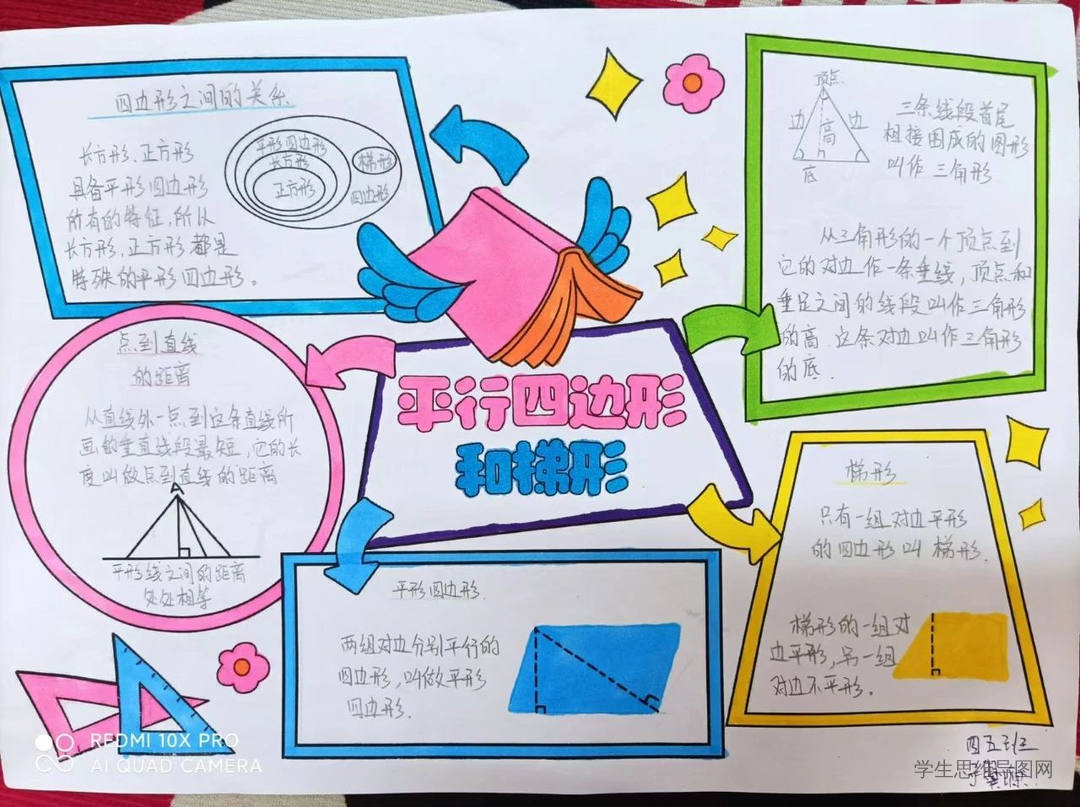 四边形之间的关系
长方形、正方形
具备平形四边形
所有的特征,所以
长方形、正方形都是
特殊的平形四边形。
平形四边形
长方形
正方形
梯形
四边形
顶点
边
高
边
底
三条线段首尾
相接围成的图形
叫作三角形
从三角形的一个顶点到
它的对边作一条垂线,顶点和
垂足之间的线段叫作三角形
的高.这条对边叫作三角形
的底.
点到直线
的距离
从直线外一点到这条直线所
画的垂直线段最短,它的长
度叫做点到直线的距离
A
平形线之间的距离
处处相等
平行四边形
和梯形
梯形
只有一组对边平形
的四边形叫梯形.
梯形的一组对
边平形,另一组
对边不平形。
平形四边形.
两组对边分别平行的
四边形,叫做平形
四边形.
四五班
REDMI 10X PRO
AI QUAD CAMERA
学生思维导图网